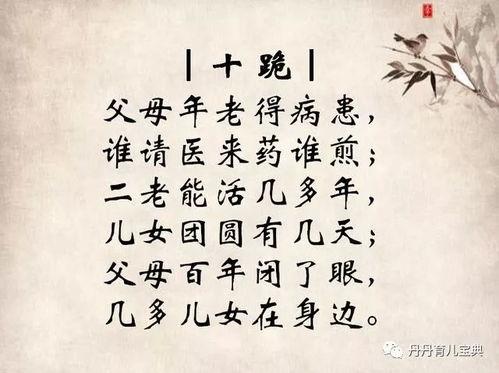 十跪
父母年老得病患，
谁请医来药谁煎；
二老能活几多年，
儿女团圆有几天；
父母百年闭了眼，
几多儿女在身边。
丹丹育儿宝典